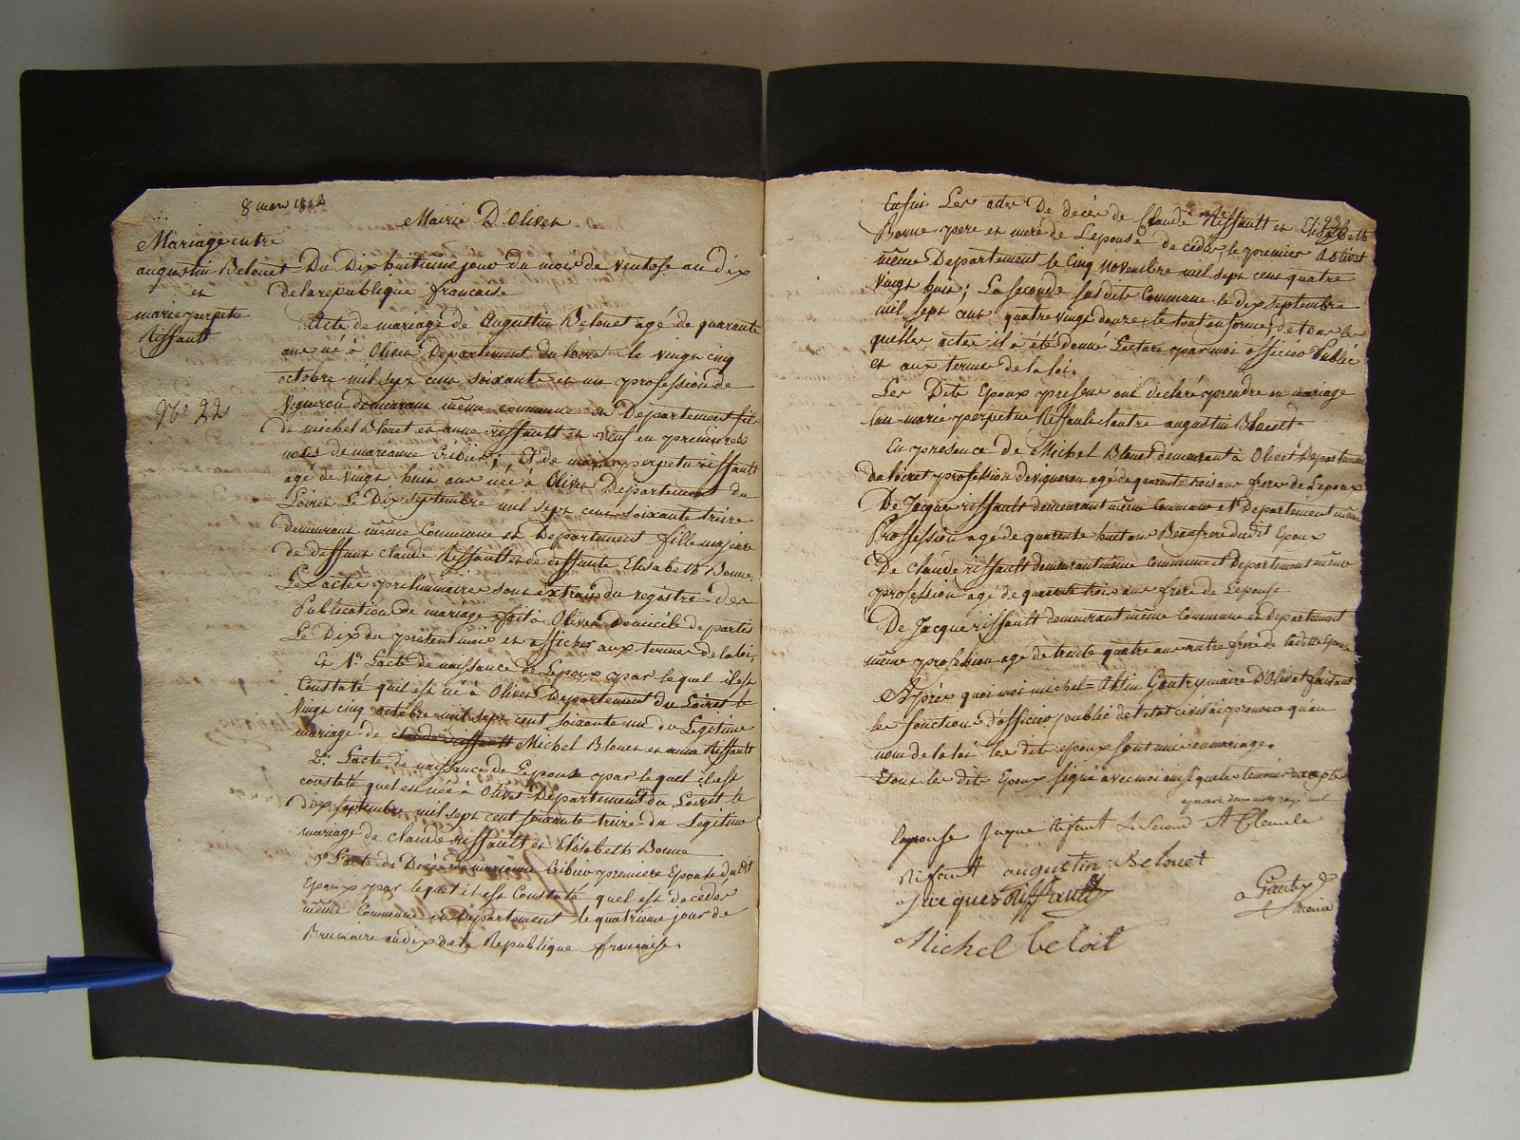 8 mars 1802
Mairie D'Olivet
Mariage entre
augustin Belouet
et
marie perpetue
Riffault
N° 22
Du Dix huitieme jour du mois de ventose an dix
de la republique francaise
Acte de mariage de Augustin Belouet agé de quarante
ans né à Olivet Departement du Loiret le vingt cinq
octobre mil sept cent soixante et un profession de
vigneron demeurant même commune et Departement fils
de michel Blouet et anne riffault et veuf en premiere
noces de marianne ; Et de marie perpetue riffault
agé de vingt huit ans née à Olivet Departement du
Loiret le Dix septembre mil sept cent soixante treize
demeurant même Commune et Departement fille majeure
de deffunt claude Riffault et de deffunte Elisabeth Bonne
Les actes preliminaires sont extrait du registre des
Publications de mariage fait à Olivet Domicile de partis
Le Dix du present mois et afficher aux termes de la loi,
Et 1° Lacte de naissance de Lepoux par lequel il est
Constaté quil est né à Olivet Departement du Loiret le
vingt cinq octobre mil sept cent soixante un du Legitime
mariage de claude riffault Michel Blouet et anne Riffault
2° Lacte de naissance de Lepouse par lequel il est
constaté quel est née à Olivet Departement du Loiret le
dix septembre mil sept cent soixante treize du Legitime
mariage de claude riffault et Elisabeth Bonne
3° Lacte de Décès de marianne premiere Epouse dudit
Epoux par lequel il est Constaté quel est decedée
même Commune et Departement le quatrieme jour de
Brumaire an dix de la Republique francaise.
Enfin Les actes De décès de Claude Riffault et Elisabeth
Bonne pere et mere de Lepouse decedés, le premier a olivet
même Departement le Cinq novembre mil sept cent quatre
vingt huit; La seconde susdite Commune le dix septembre
mil sept cent quatre vingt douze, le tout en forme, de tous les
quelles actes il a été donné Lecture par moi officier Public
et aux termes de la loi.
Les Dits Epoux present ont déclaré prendre en mariage
lun marie perpetue Riffault lautre augustin Blouet
En presence de Michel Blouet demeurant à Olivet Departement
du loiret profession de vigneron agé de quarante trois ans frere de Lepoux
De Jacque riffault demeurant même Commune et Departement même
Proffession agé de quarente huit ans Beaufrere dudit Epoux
De Claude riffault demeurant même Commune et Departement même
profession agé de quarente trois ans frere de Lepouse
De Jacque riffault demeurant même Commune et departement
même profession agé de trente quatre ans autre frere de ladette Epouse
Après quoi moi michel Gautry maire d'Olivet faisant
les fonctions d'officier public de l'etat civil ai prononcé quau
nom de la loi les dits epoux sont unis en mariage.
Et ont les dit Epoux signé avec moi ainsi que les temoins excepté
lepouse Jaque Rifaut Le Second Et Claude
Rifaut augustin Belouet
Jacques Riffault
Gautry
maire
Michel beloit